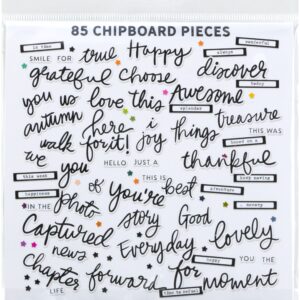 85 CHIPBOARD PIECES
in time
wonderful
SMILE FOR true Happy always
grateful choose discover
today
you us love this Awesome
splendid
autumn here i things treasure
walk for it! joy THIS WAS
based on a
we you HELLO JUST A thankful
this week
keep moving
happiness of You're best adventure
IN THE photo THIS IS YOU
a society
Captured story Good lovely
news Everyday
happy YOU THE
chapter forward for moment
LIFE